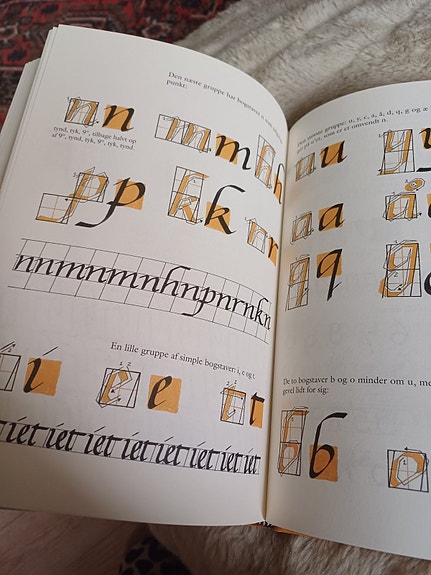 Den næste gruppe har bogstavet n som
punkt:
n n
m m
h
tynd, tyk, 9°, tilbage halvt op
af 9°, tynd, tyk, 9°, tyk, tynd.
p p
k k
r
nnmnmnhnpnrnkn
En lille gruppe af simple bogstaver: i, e og t.
i
e e
t t
íet íet íet íet íet íet íet íet
gruppe: u, y, c, a, å, d, q, g og æ
som er et omvendt n.
u
y
a a
å
q q
g
De to bogstaver b og o minder om u, me
gevel lidt for sig:
b b
o